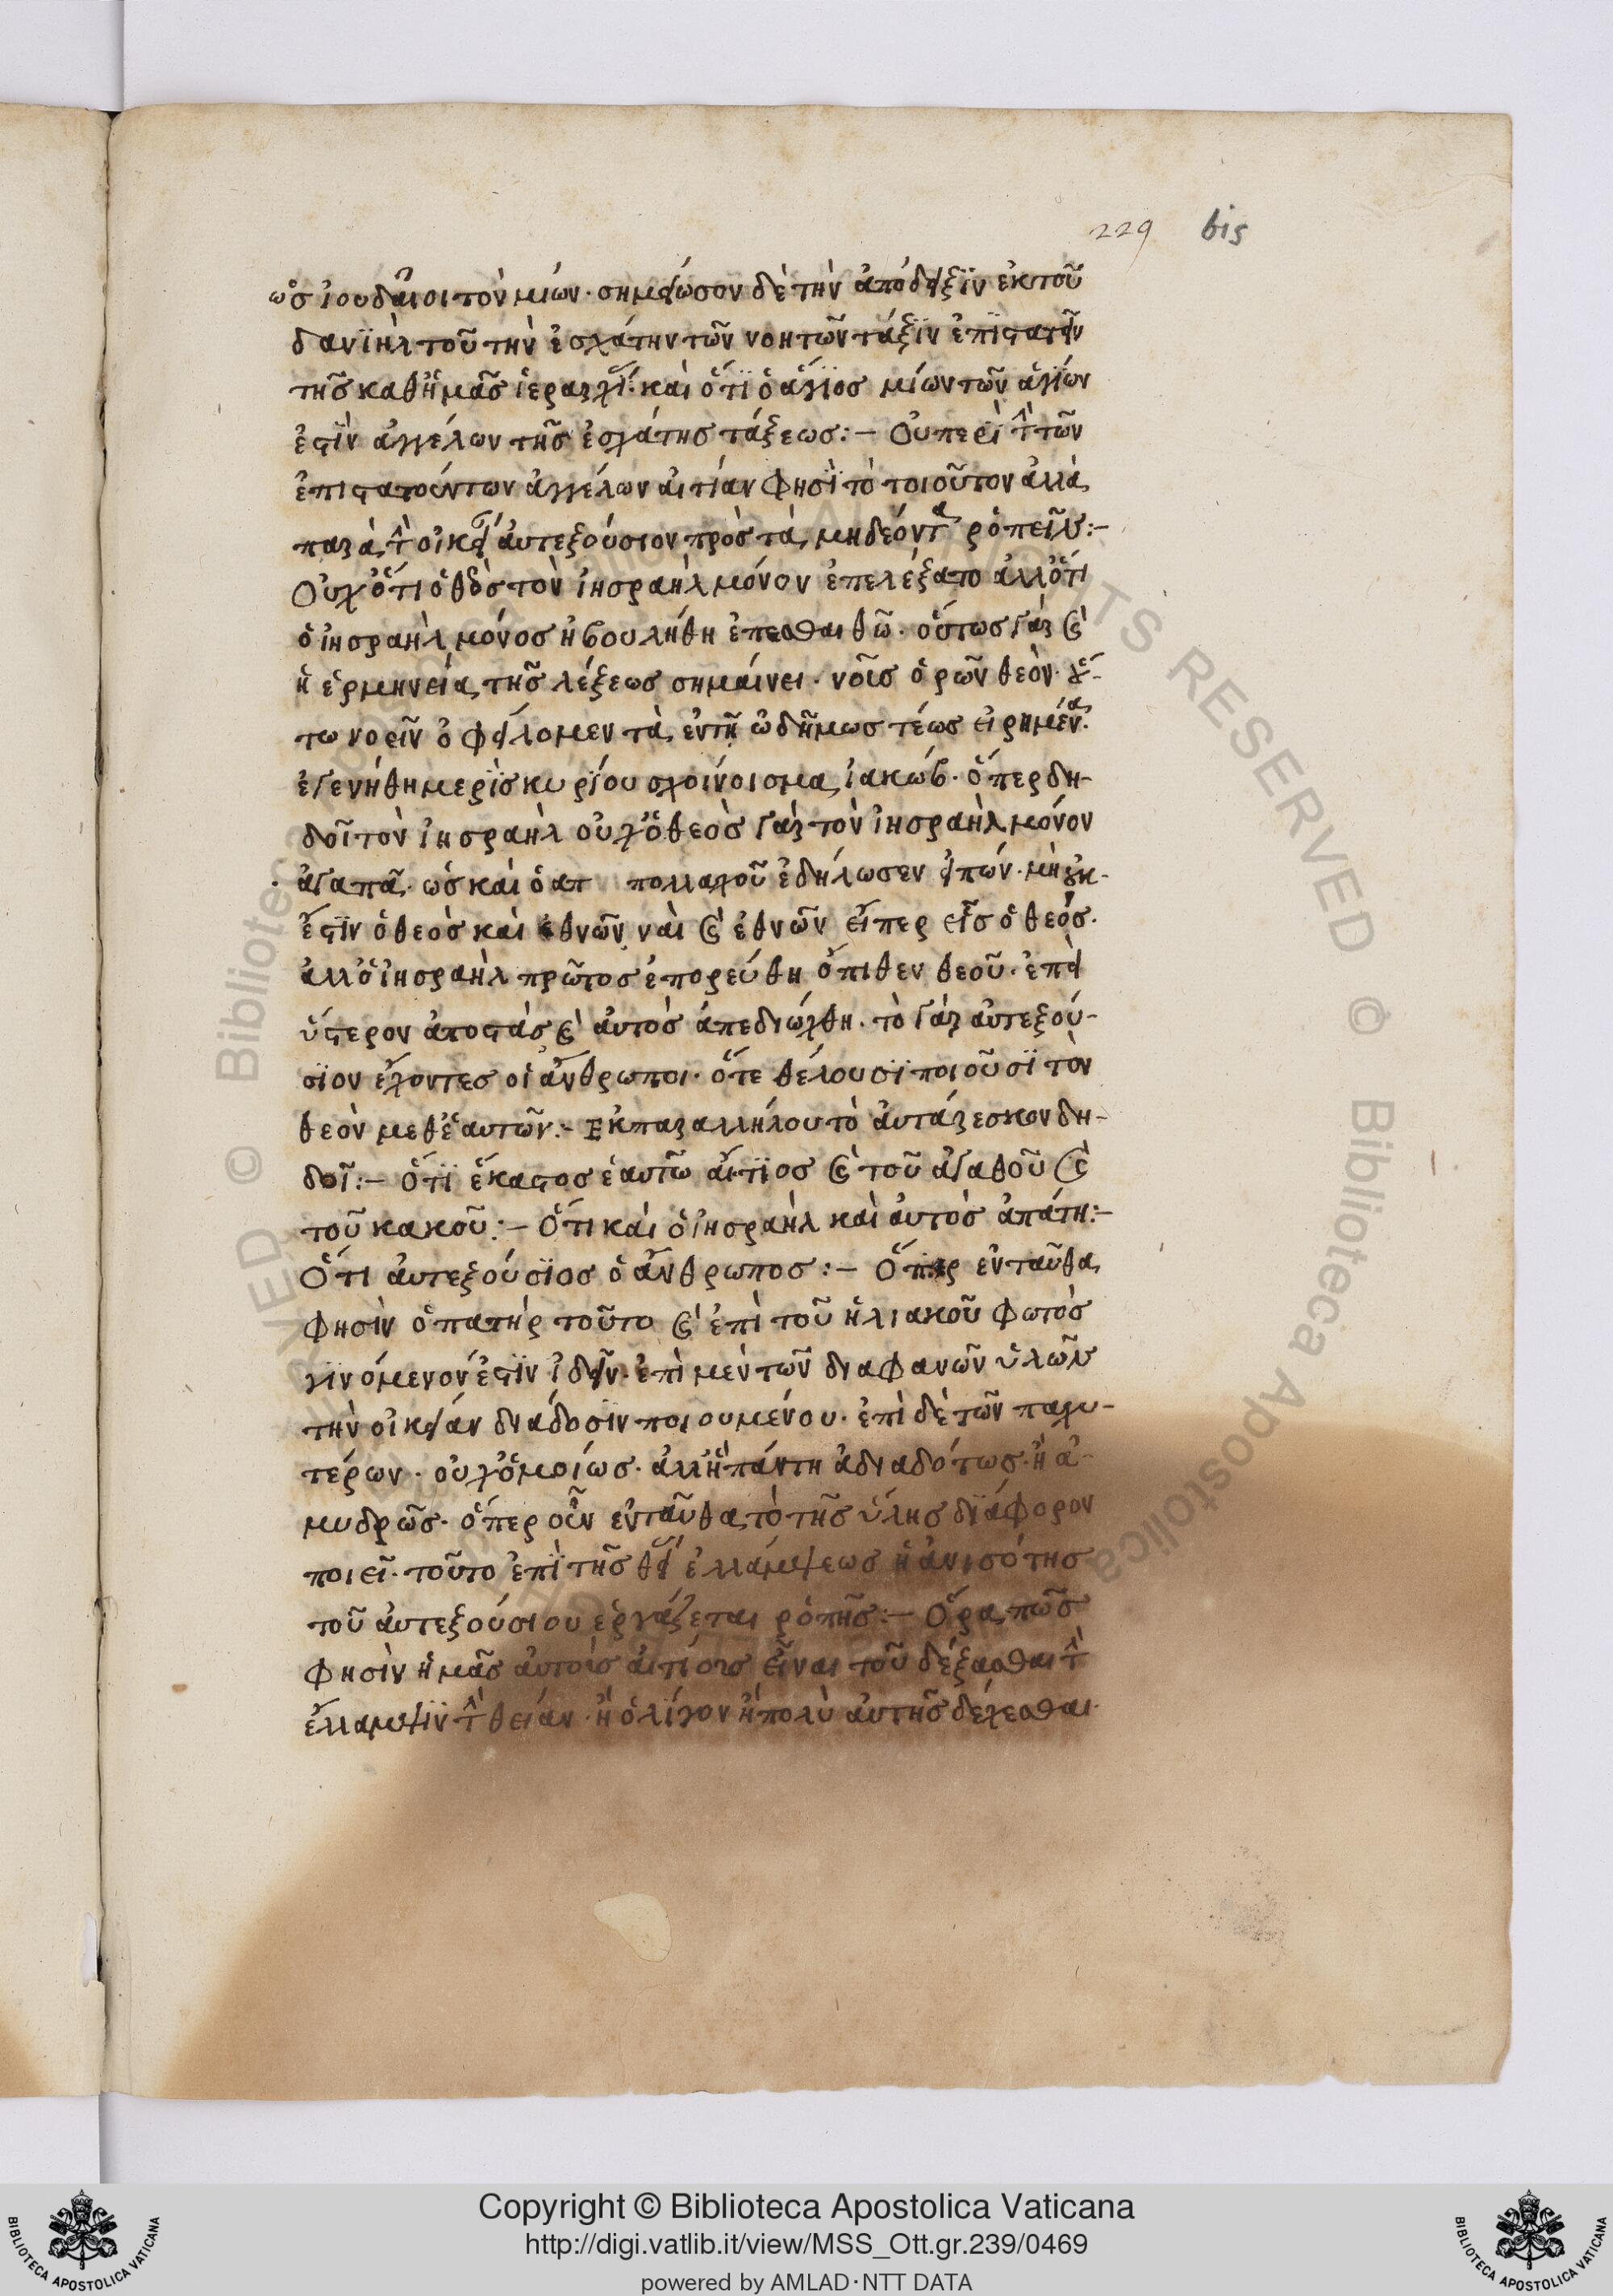 229 bis
ὡς ἰουδαῖοι τὸν μιών· σημείωσον δὲ τὴν ἀπόδειξϊν ἐκ τοῦ
δανϊὴλ τοῦ τὴν ἐσχάτην τῶν νοητῶν τάξϊν ἐπϊστατεῖν
τῆς καθ ἡμᾶς ἱεραρχί· καὶ ὅτϊ ὁ ἅγϊος μίων τῶν ἁγϊων
ἐστϊν ἀγγέλων τῆς ἐσχάτης τάξεως:– Οὐ περὶ τ̂ τῶν
ἐπιστατούντων ἀγγέλων αἰτίαν φησϊ τὸ τοιοῦτον ἀλλὰ
παρὰ τ̂ οἰκεί αὐτεξούσιον πρὸς τὰ μὴ δέοντα ῥοπεῖν:–
Οὐχ ὅτι ὁ θεὸς τὸν ἰησραὴλ μόνον ἐπελέξατο ἀλλ ὅτι
ὁ ἰησραὴλ μόνος ἠβουλήθη ἕπεσθαι θῶ· οὕτως γὰρ καὶ
ἡ ἑρμηνεία τῆς λέξεως σημαίνει· νοῦς ὁρῶν θεὸν· οὕ-
τω νοεῖν ὀφείλομεν τὰ ἐν τῇ ὠδῇ μωστέως εἰρημένα·
ἐγενήθη μερὶς κυρίου σχοίνοισμα ἰακώβ· ὅπερ δη-
δοῖ τὸν ἰησραὴλ οὐχ ὁ θεὸς γὰρ τὸν ἰησραὴλ μόνον
ἀγαπᾶ· ὡς καὶ ὁ ἀπ πολλαχοῦ ἐδήλωσεν εἰπών· μὴ οὐκ-
ἔστϊν ὁ θεὸς καὶ ἐθνῶν ναὶ καὶ ἐθνῶν εἴπερ εἷς ὁ θεός·
ἀλλ ὁ ἰησραὴλ πρῶτος ἐπορεύθη ὄπιθεν θεοῦ· ἐπεὶ
ὕστερον ἀποστὰς καὶ αὐτὸς ἀπεδιώχθη· τὸ γὰρ αὐτεξού-
σϊον ἔχοντες οἱ ἄνθρωποι· ὅτε θέλουσϊ ποιοῦσϊ τὸν
θεὸν μεθ ἑαυτῶν:– Ἐκ παραλλήλου τὸ αὐτάρεσκον δη-
δοῖ:– Ὅτϊ ἕκαστος ἑαυτῶ αἴτϊος καὶ τοῦ ἀγαθοῦ καὶ
τοῦ κακοῦ:– Ὅτι καὶ ὁ ἰησραὴλ καὶ αὐτὸς ἀπάτη:–
Ὅτι αὐτεξούσϊος ὁ ἄνθρωπος:– Ὅπερ ἐνταῦθα
φησὶν ὁ πατὴρ τοῦτο καὶ ἐπὶ τοῦ ἡλιακοῦ φωτὸς
γϊνόμενόν ἐστϊν ἰδεῖν· ἐπὶ μὲν τῶν διαφανῶν ὑλῶν
τὴν οἰκείαν διάδοσϊν ποιουμένου· ἐπὶ δὲ τῶν παχυ-
τέρων· οὐχ ὁμοίως· ἀλλ ἢ πάντη ἀδιαδότως· ἢ ἀ-
μυδρῶς· ὅπερ οὖν ἐνταῦθα τὸ τῆς ὕλης δϊάφορον
ποιεῖ· τοῦτο ἐπϊ τῆς θεί ἐλλάμψεως ἡ ἀνισότης
τοῦ αὐτεξούσιου ἐργάζεται ῥοπῆς:– Ὅρα πῶς
φησὶν ἡμᾶς αὐτοὶς αἰτίους εἶναι τοῦ δέξασθαι τ̂
ἔλλαμψϊν τ̂ θείαν· ἢ ὀλίγον ἢ πολὺ αὐτῆς δέχεσθαι·
Copyright © Biblioteca Apostolica Vaticana
http://digi.vatlib.it/view/MSS_Ott.gr.239/0469
powered by AMLAD·NTT DATA